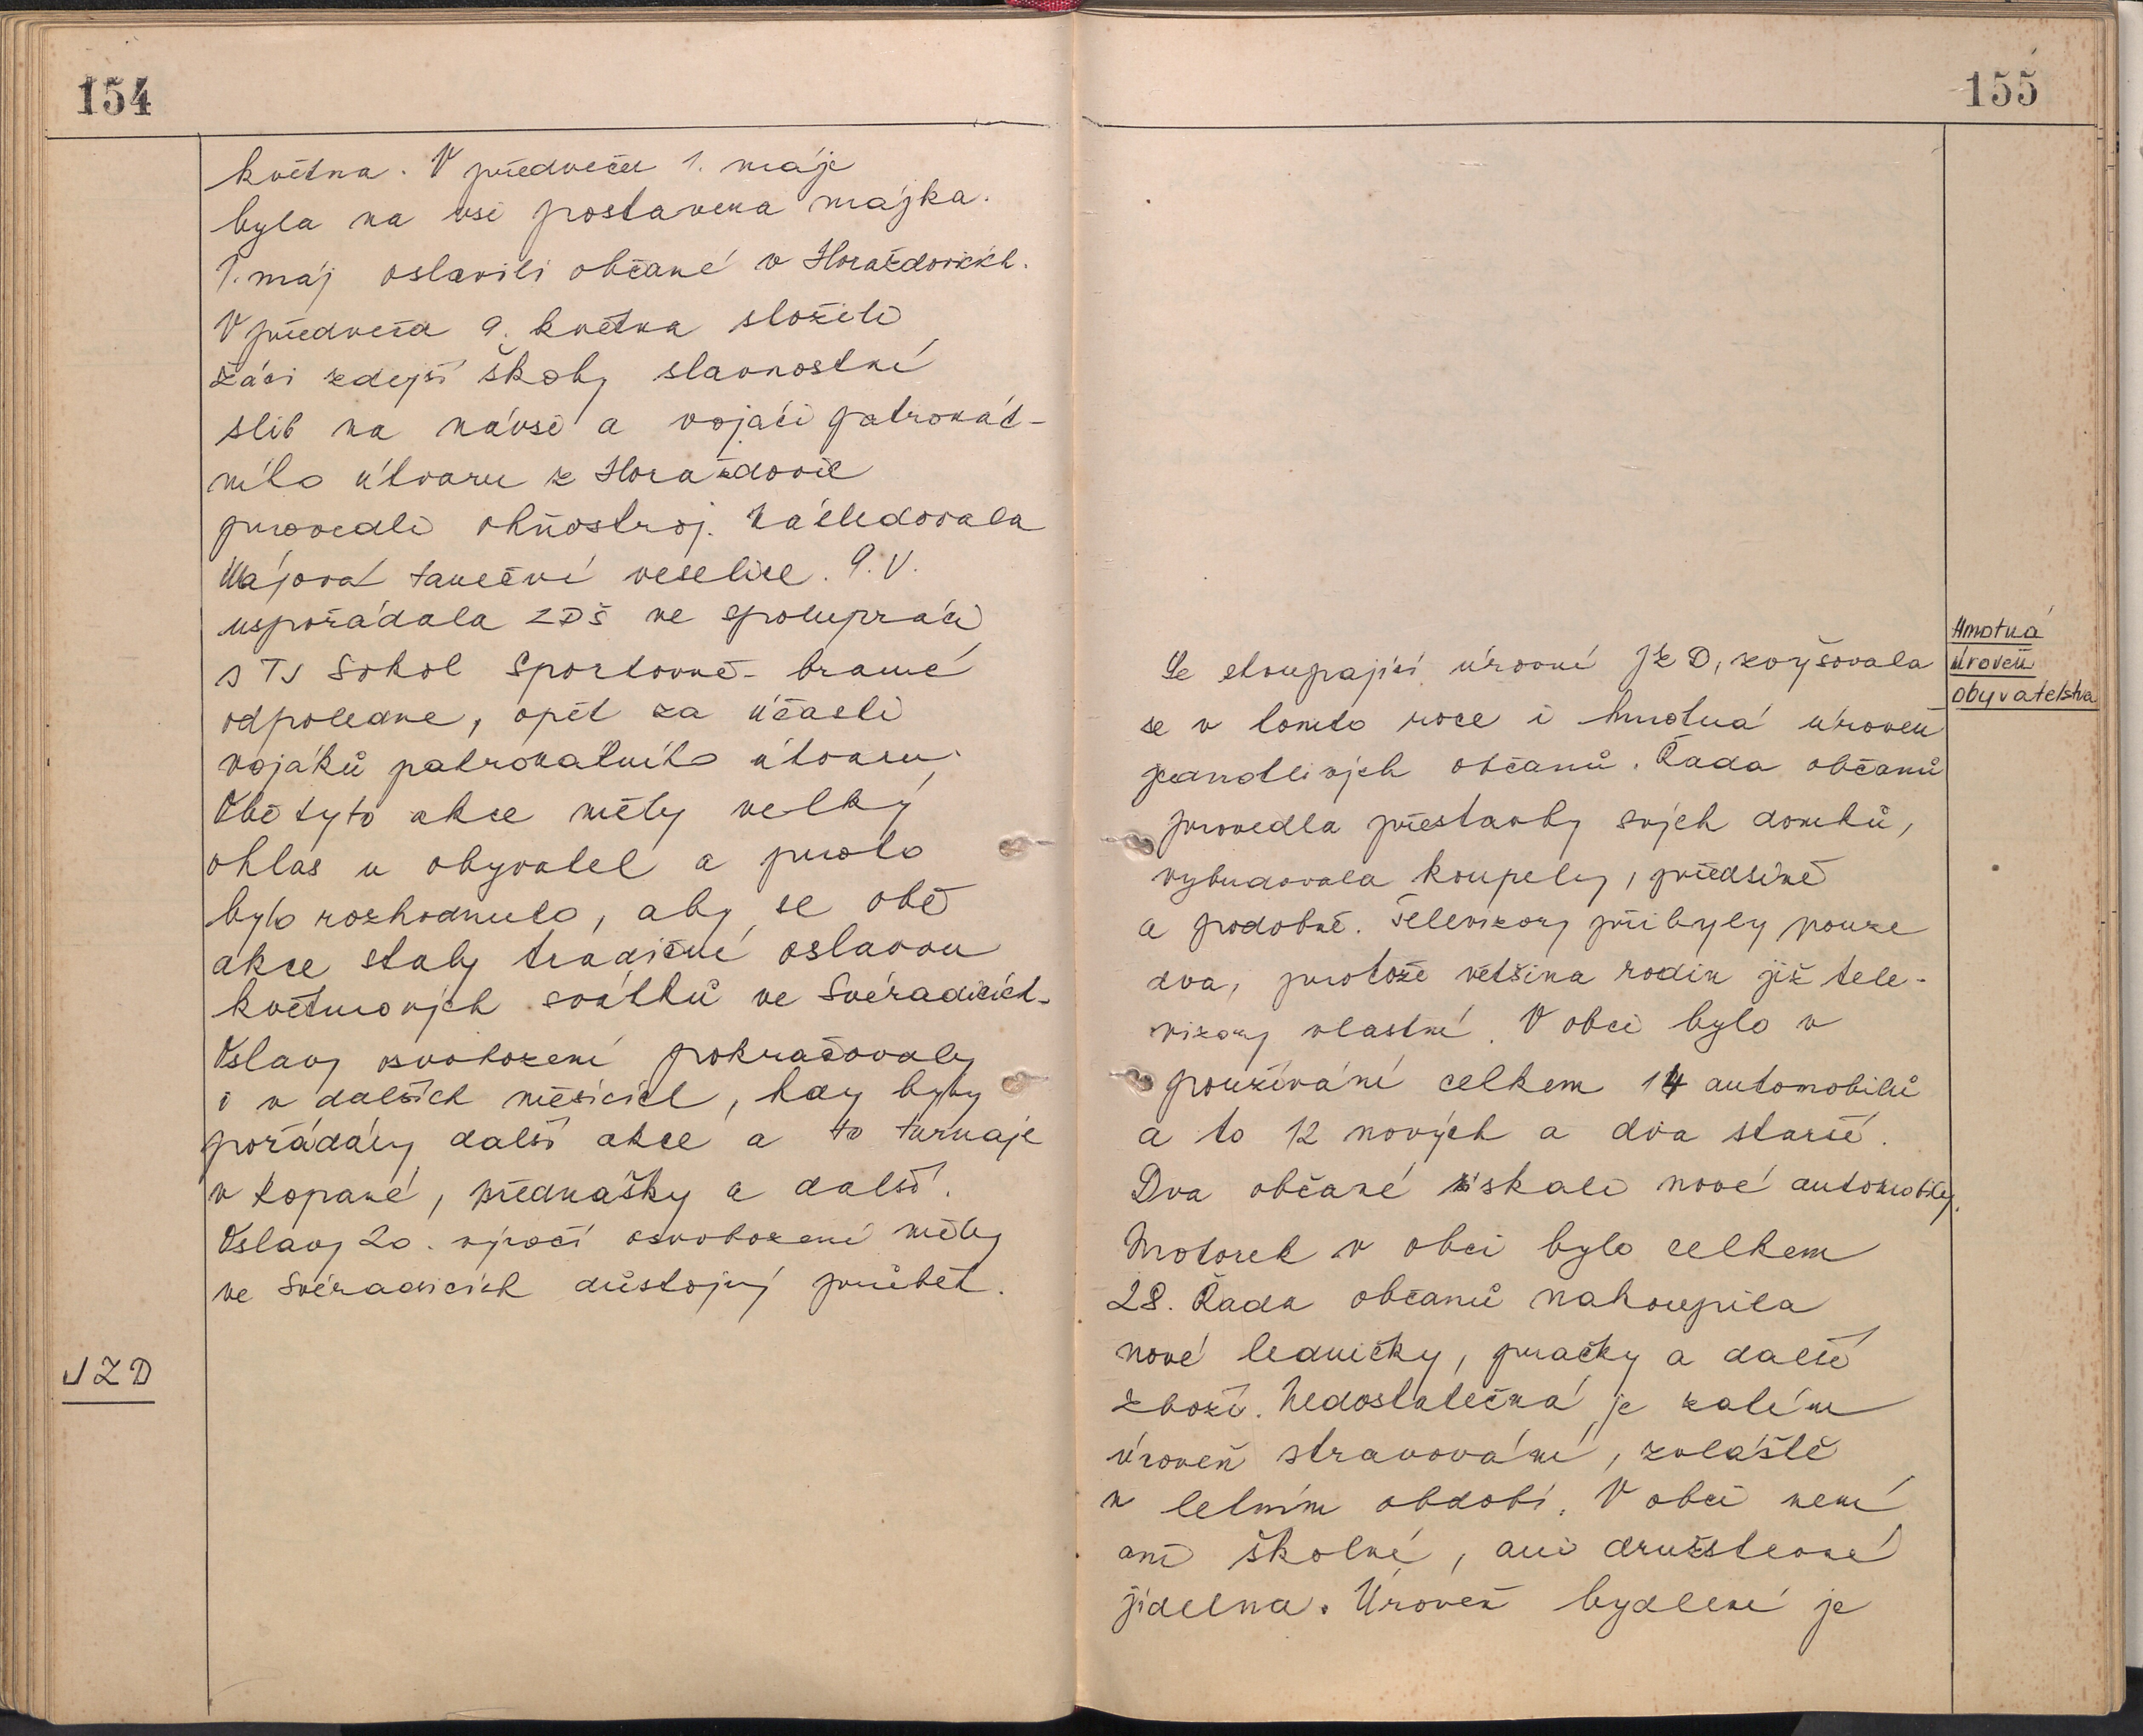 154
května. V předvečer 1. máje
byla na vsi postavena májka.
1. máj oslavili občané v Horažďovicích.
V předvečer 9. května složili
žáci zdejší školy slavnostní
slib na návsi a vojáci patronát-
ního útvaru z Horažďovic
provedli ohňostroj. Následovala
Májová taneční veselice. 9. V.
uspořádala ZDŠ ve spolupráci
s TJ Sokol Sportovně-branné
odpoledne, opět za účasti
vojáků patronátního útvaru.
Obě tyto akce měly velký
ohlas u obyvatel a proto
bylo rozhodnuto, aby se obě
akce staly tradiční oslavou
květnových svátků ve Svéradicích.
Oslavy osvobození pokračovaly
i v dalších měsících, kdy byly
pořádány další akce a to turnaje
v kopané, přednášky a další.
Oslavy 20. výročí osvobození měly
ve Svéradicích důstojný průběh.
JZD
155
Hmotná
úroveň
obyvatelstva
Se stoupající úrovní JZD, zvyšovala
se v tomto roce i hmotná úroveň
jednotlivých občanů. Řada občanů
provedla přestavby svých domků,
vybudovala koupelny, předsíně
a podobně. Televizory přibyly pouze
dva, protože většina rodin již tele-
vizory vlastní. V obci bylo v
používání celkem 14 automobilů
a to 12 nových a dva starší.
Dva občané získali nové automobily.
Motorek v obci bylo celkem
28. Řada občanů nakoupila
nové ledničky, pračky a další
zboží. Nedostatečná je zatím
úroveň stravování, zvláště
v letním období. V obci není
ani školní, ani družstevní
jídelna. Úroveň bydlení je